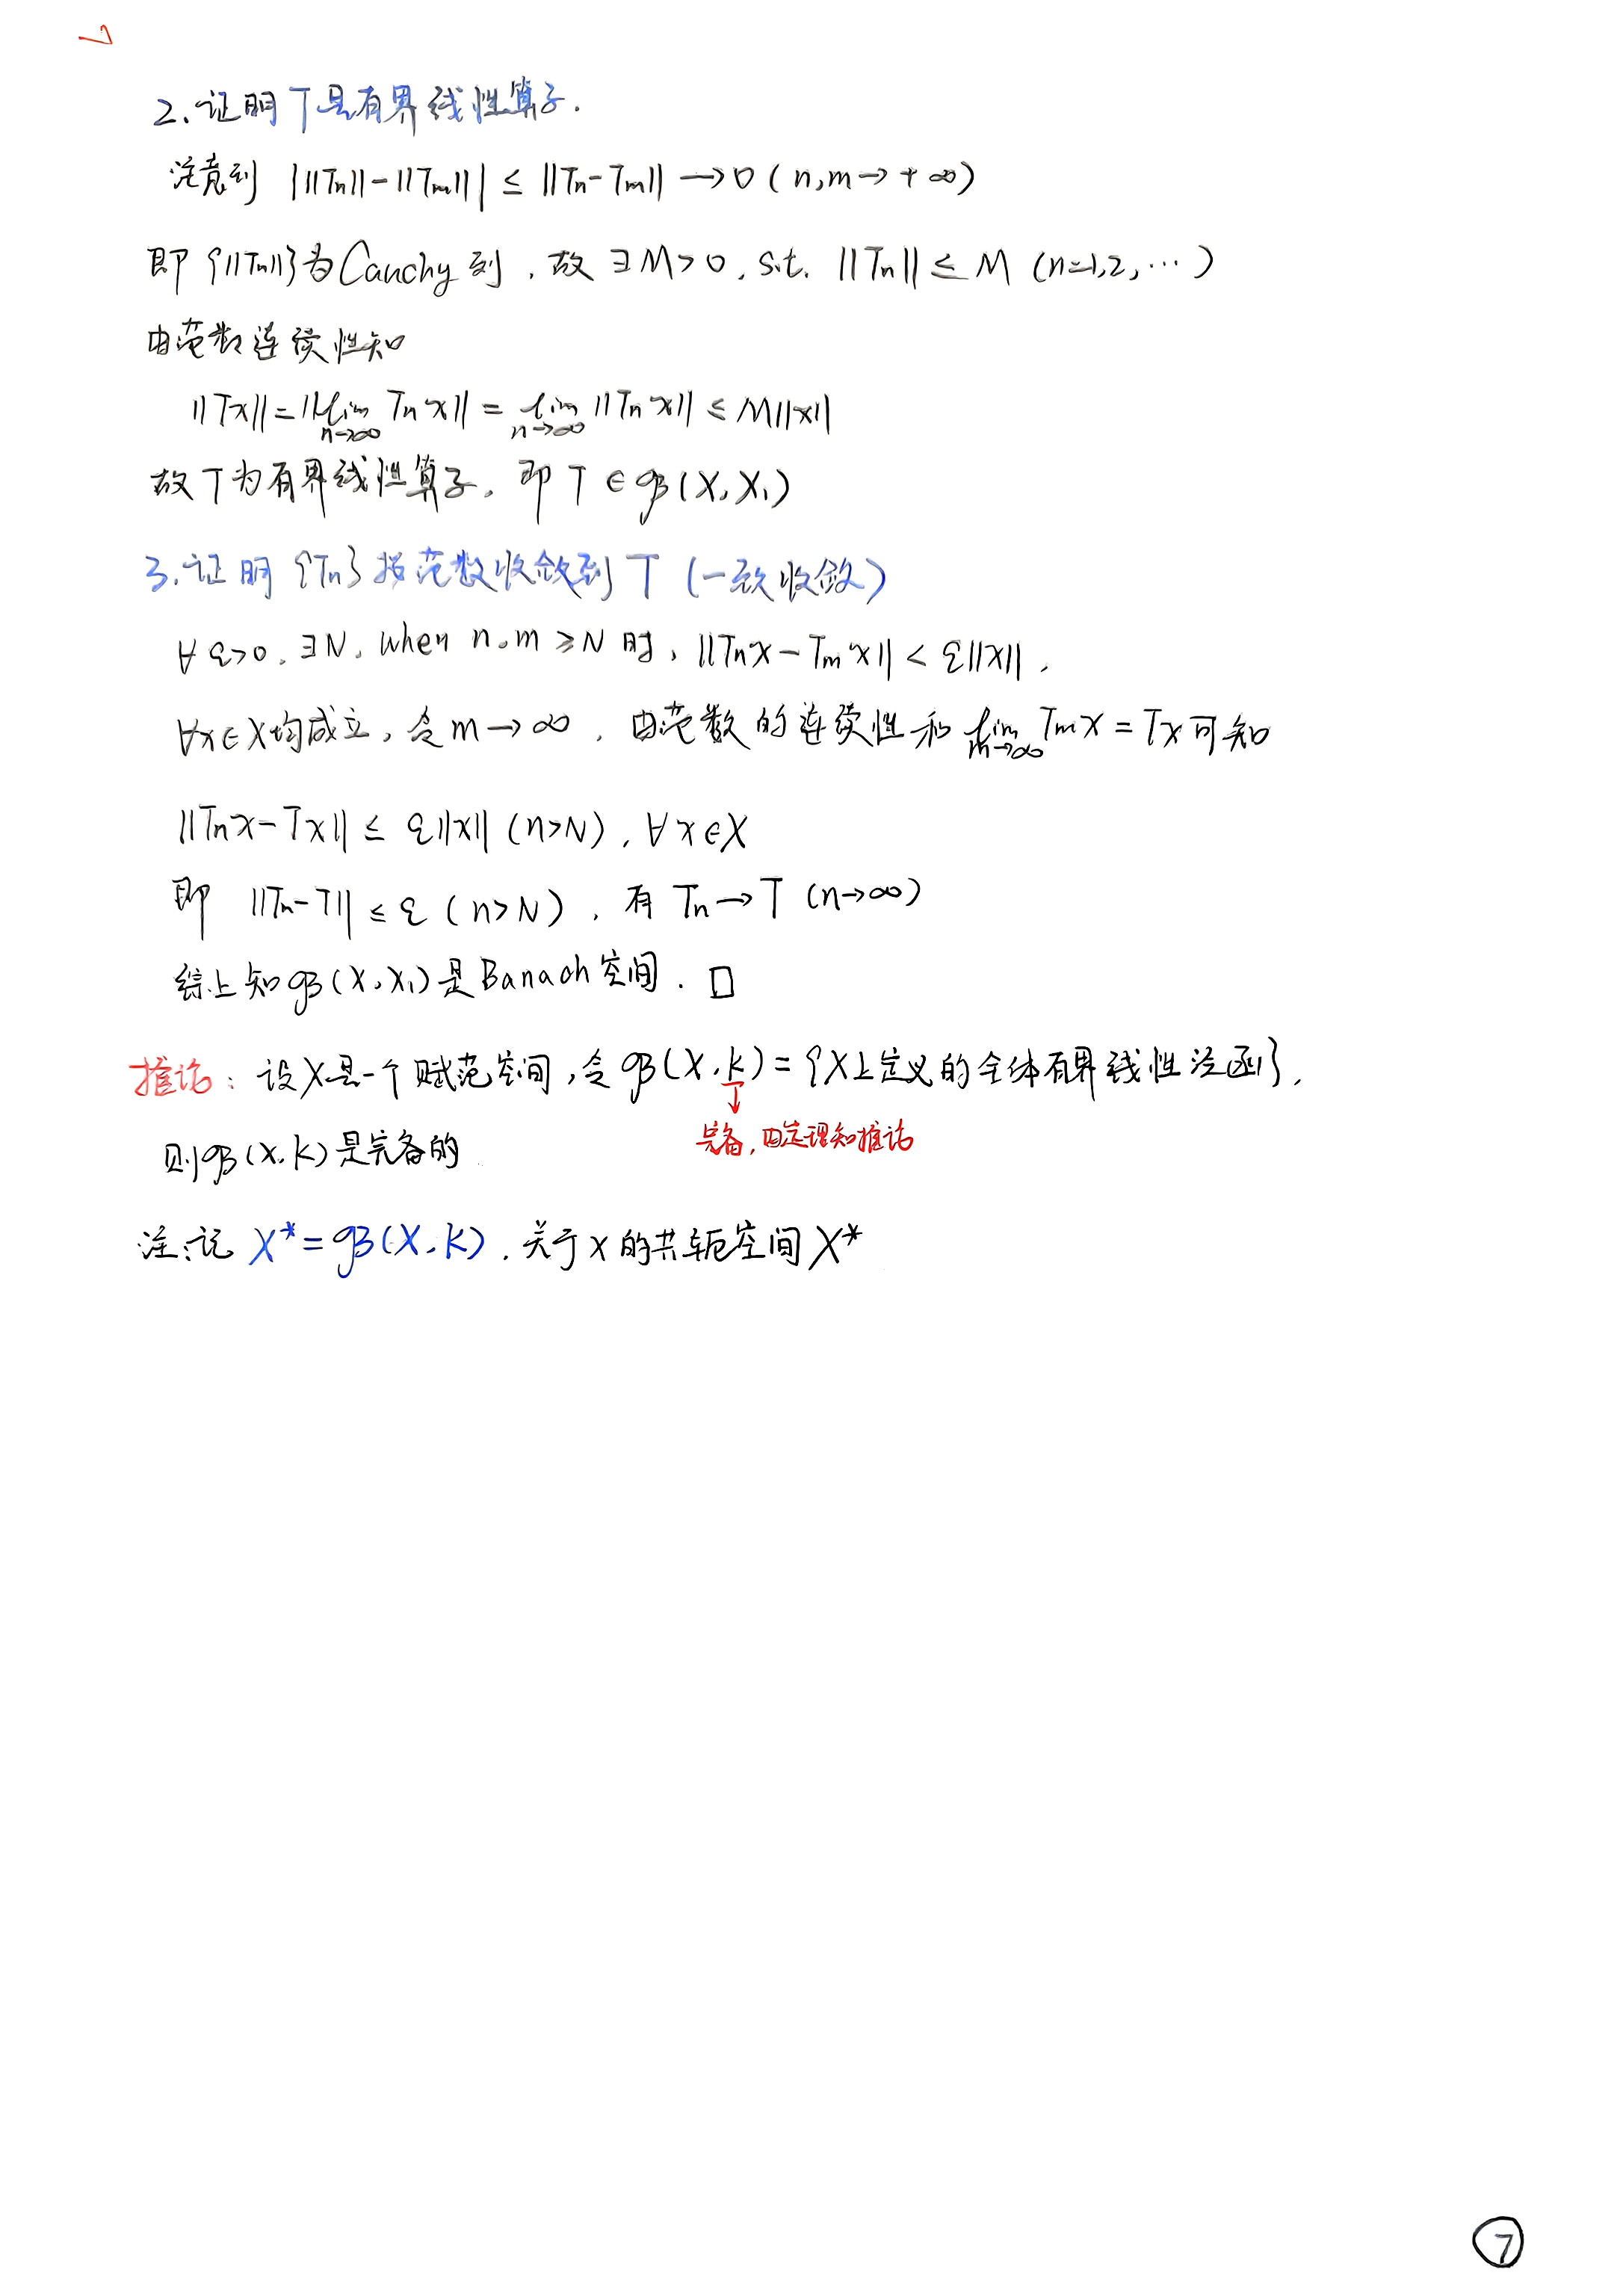 2.证明T是有界线性算子.
注意到 |‖Tn‖-‖Tm‖| ≤ ‖Tn-Tm‖ → 0 (n,m→+∞)
即 {‖Tn‖}为Cauchy列,故∃M>0,s.t. ‖Tn‖≤M (n=1,2,…)
由范数连续性知
‖Tx‖=‖lim_{n→∞} Tn x‖ = lim_{n→∞} ‖Tn x‖ ≤ M‖x‖
故T为有界线性算子,即 T∈𝓑(X,X₁)
3.证明{Tn}按范数收敛到T (一致收敛)
∀ε>0,∃N,when n,m≥N时,‖Tnx-Tmx‖<ε‖x‖,
∀x∈X均成立,令m→∞,由范数的连续性和 lim_{m→∞} Tmx=Tx可知
‖Tnx-Tx‖ ≤ ε‖x‖ (n>N),∀x∈X
即 ‖Tn-T‖ ≤ ε (n>N),有 Tn→T (n→∞)
综上知𝓑(X,X₁)是Banach空间. □
推论: 设X是一个赋范空间,令𝓑(X,K)={X上定义的全体有界线性泛函},
↓
完备,由定理知推论
则𝓑(X,K)是完备的
注:记 X*=𝓑(X,K).关于X的共轭空间X*
7